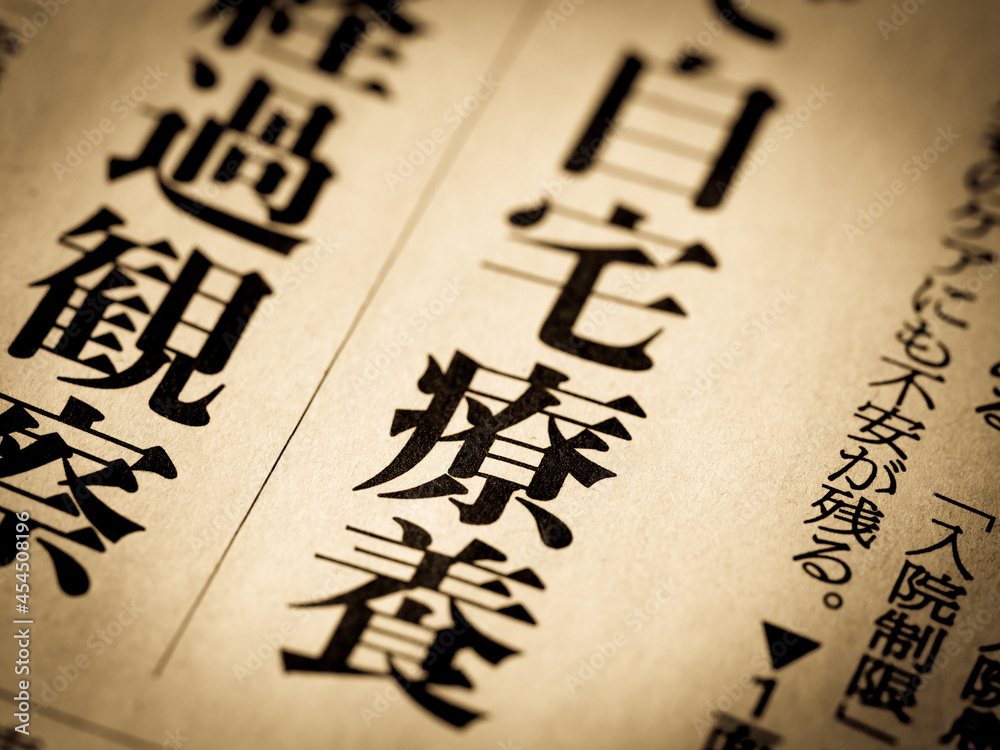 のケアにも不安が残る。
「入院制限」
▼1
自宅療養
経過観察
Adobe Stock | #454508196